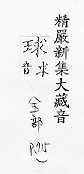 精嚴新集大藏音
球 求
音
(玉部 P.15)